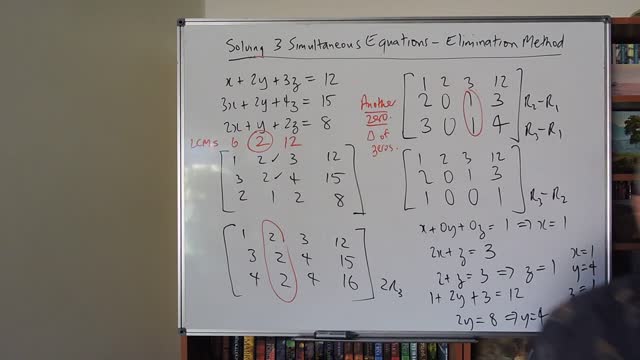 Solving 3 Simultaneous Equations – Elimination Method
x + 2y + 3z = 12
3x + 2y + 4z = 15
2x + y + 2z = 8
LCMs 6 2 12
1 2 ✓ 3 12
3 2 ✓ 4 15
2 1 2 8
1 2 3 12
3 2 4 15
4 2 4 16 2R3
Another zero. Δ of zeros.
1 2 3 12
2 0 1 3 R2 – R1
3 0 1 4 R3 – R1
1 2 3 12
2 0 1 3
1 0 0 1 R3 – R2
x + 0y + 0z = 1 ⇒ x = 1
2x + z = 3
2 + z = 3 ⇒ z = 1
1 + 2y + 3 = 12
2y = 8 ⇒ y = 4
x = 1
y = 4